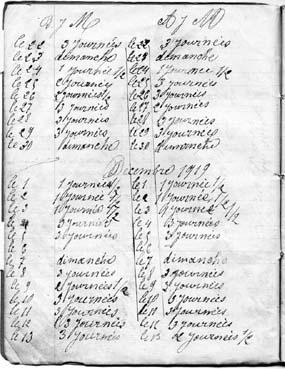 D J M A J M
le 22 3 Journées le 22 3 Journées
le 23 dimanche le 23 dimanche
le 24 1 Journée 1/2 le 24 1 Journée 1/2
le 25 2 Journées le 25 Journées
le 26 Journées 1/2 le 26 Journées
le 27 3 Journées le 27 2 Journées
le 28 3 Journées le 28 3 Journées
le 29 3 Journées le 29 3 Journées
le 30 dimanche le 30 dimanche
Décembre 1919
le 1 1 Journée le 1 1 Journée 1/2
le 2 1 Journée 1/2 le 2 1 Journée 1/2
le 3 1 Journée 1/2 le 3 Journée 1/2
le 4 3 Journées le 4 3 Journées
le 5 3 Journées le 5 3 Journées
le 6 le 6
le 7 dimanche le 7 dimanche
le 8 3 journées le 8 3 journées
le 9 2 Journées 1/2 le 9 3 Journées
le 10 3 Journées le 10 3 Journées
le 11 3 Journées le 11 3 Journées
le 12 3 Journées le 12 3 Journées
le 13 3 Journées le 13 2 Journées 1/2